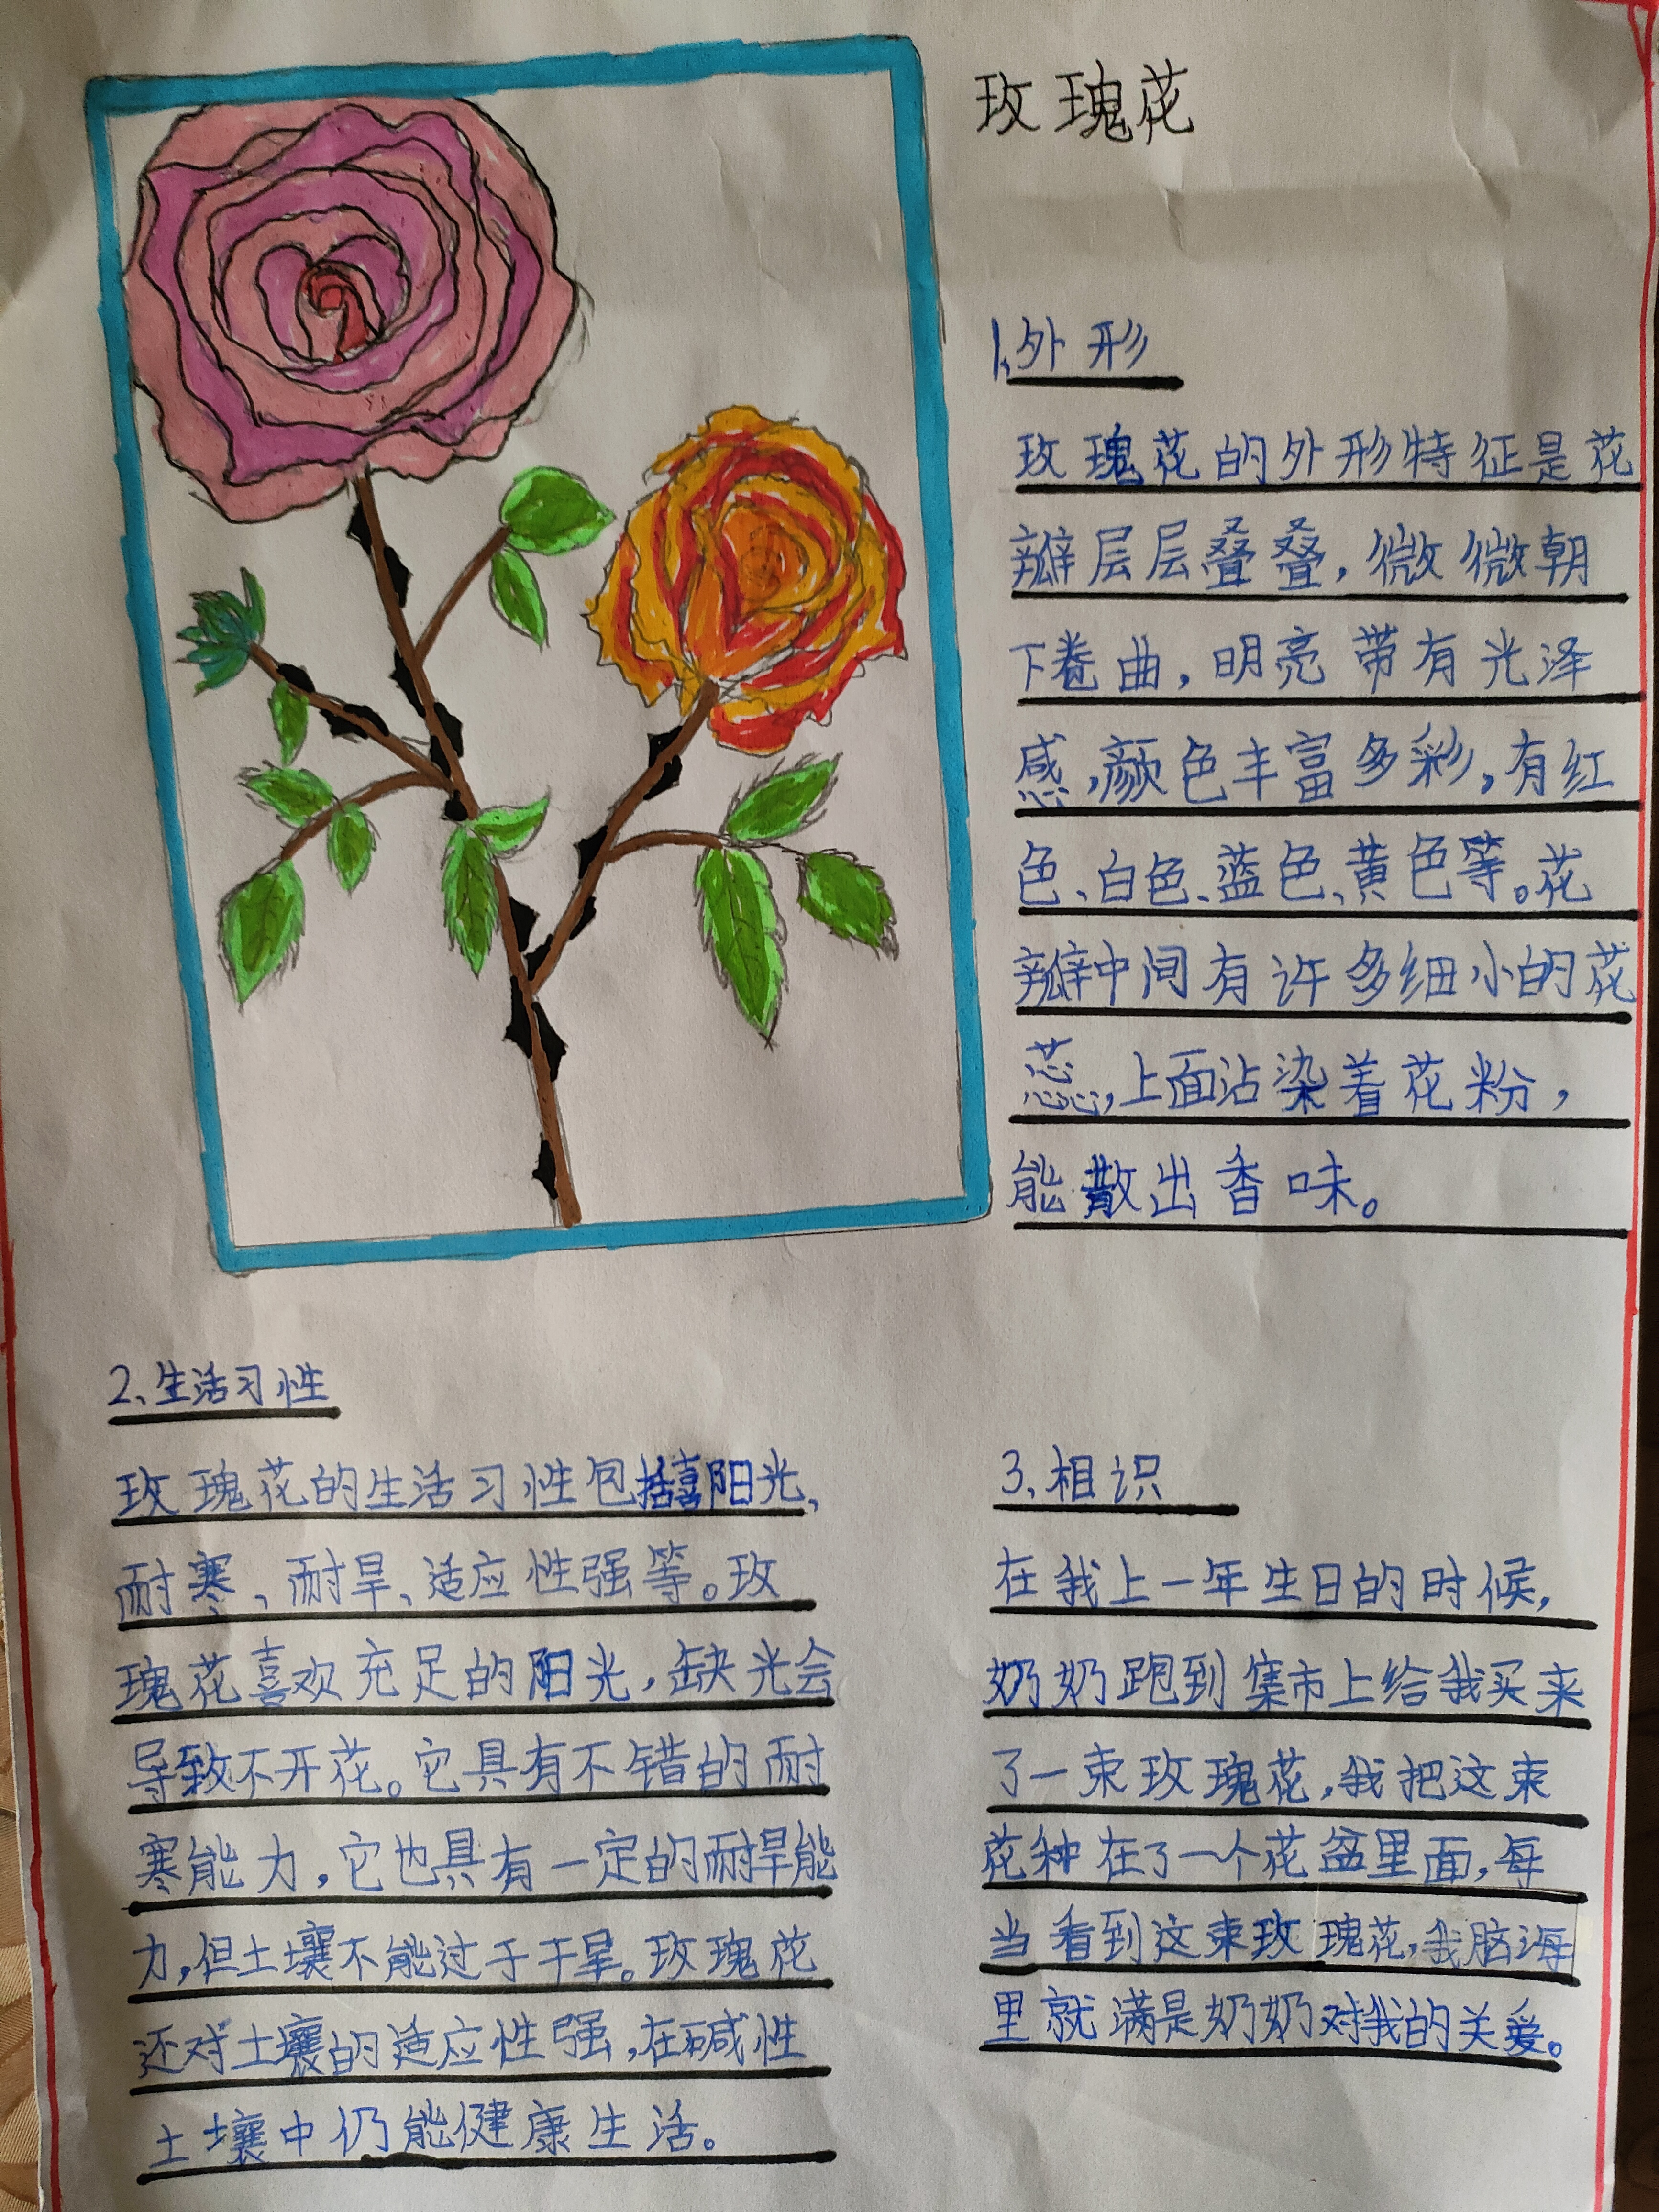 玫瑰花
1、外形
玫瑰花的外形特征是花
瓣层层叠叠，微微朝
下卷曲，明亮带有光泽
感，颜色丰富多彩，有红
色、白色、蓝色、黄色等。花
瓣中间有许多细小的花
蕊，上面沾染着花粉，
能散出香味。
2、生活习性
玫瑰花的生活习性包括喜阳光、
耐寒、耐旱、适应性强等。玫
瑰花喜欢充足的阳光，缺光会
导致不开花。它具有不错的耐
寒能力，它也具有一定的耐旱能
力，但土壤不能过于干旱。玫瑰花
还对土壤的适应性强，在碱性
土壤中仍能健康生活。
3、相识
在我上一年生日的时候，
奶奶跑到集市上给我买来
了一束玫瑰花，我把这束
花种在了一个花盆里面，每
当看到这束玫瑰花，我脑海
里就满是奶奶对我的关爱。